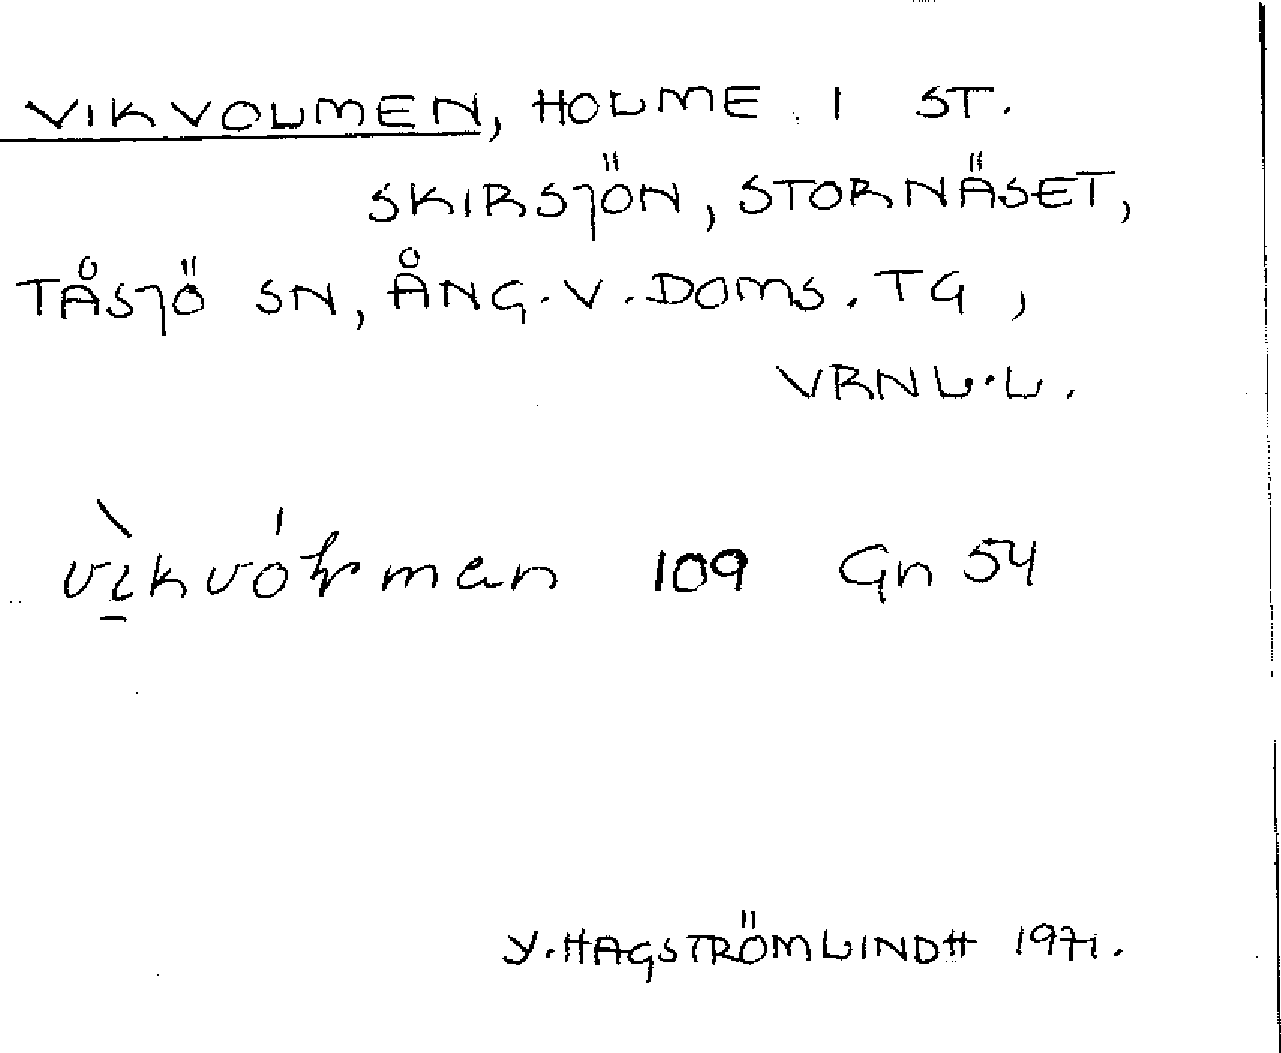 VIKVOLMEN, HOLME I ST.
SKIRSJÖN, STORNÄSET,
TÅSJÖ SN, ÅNG. V. DOMS. TG,
VRNL.L.
109 Gn 54
Y. HAGSTRÖMLINDH 1971.